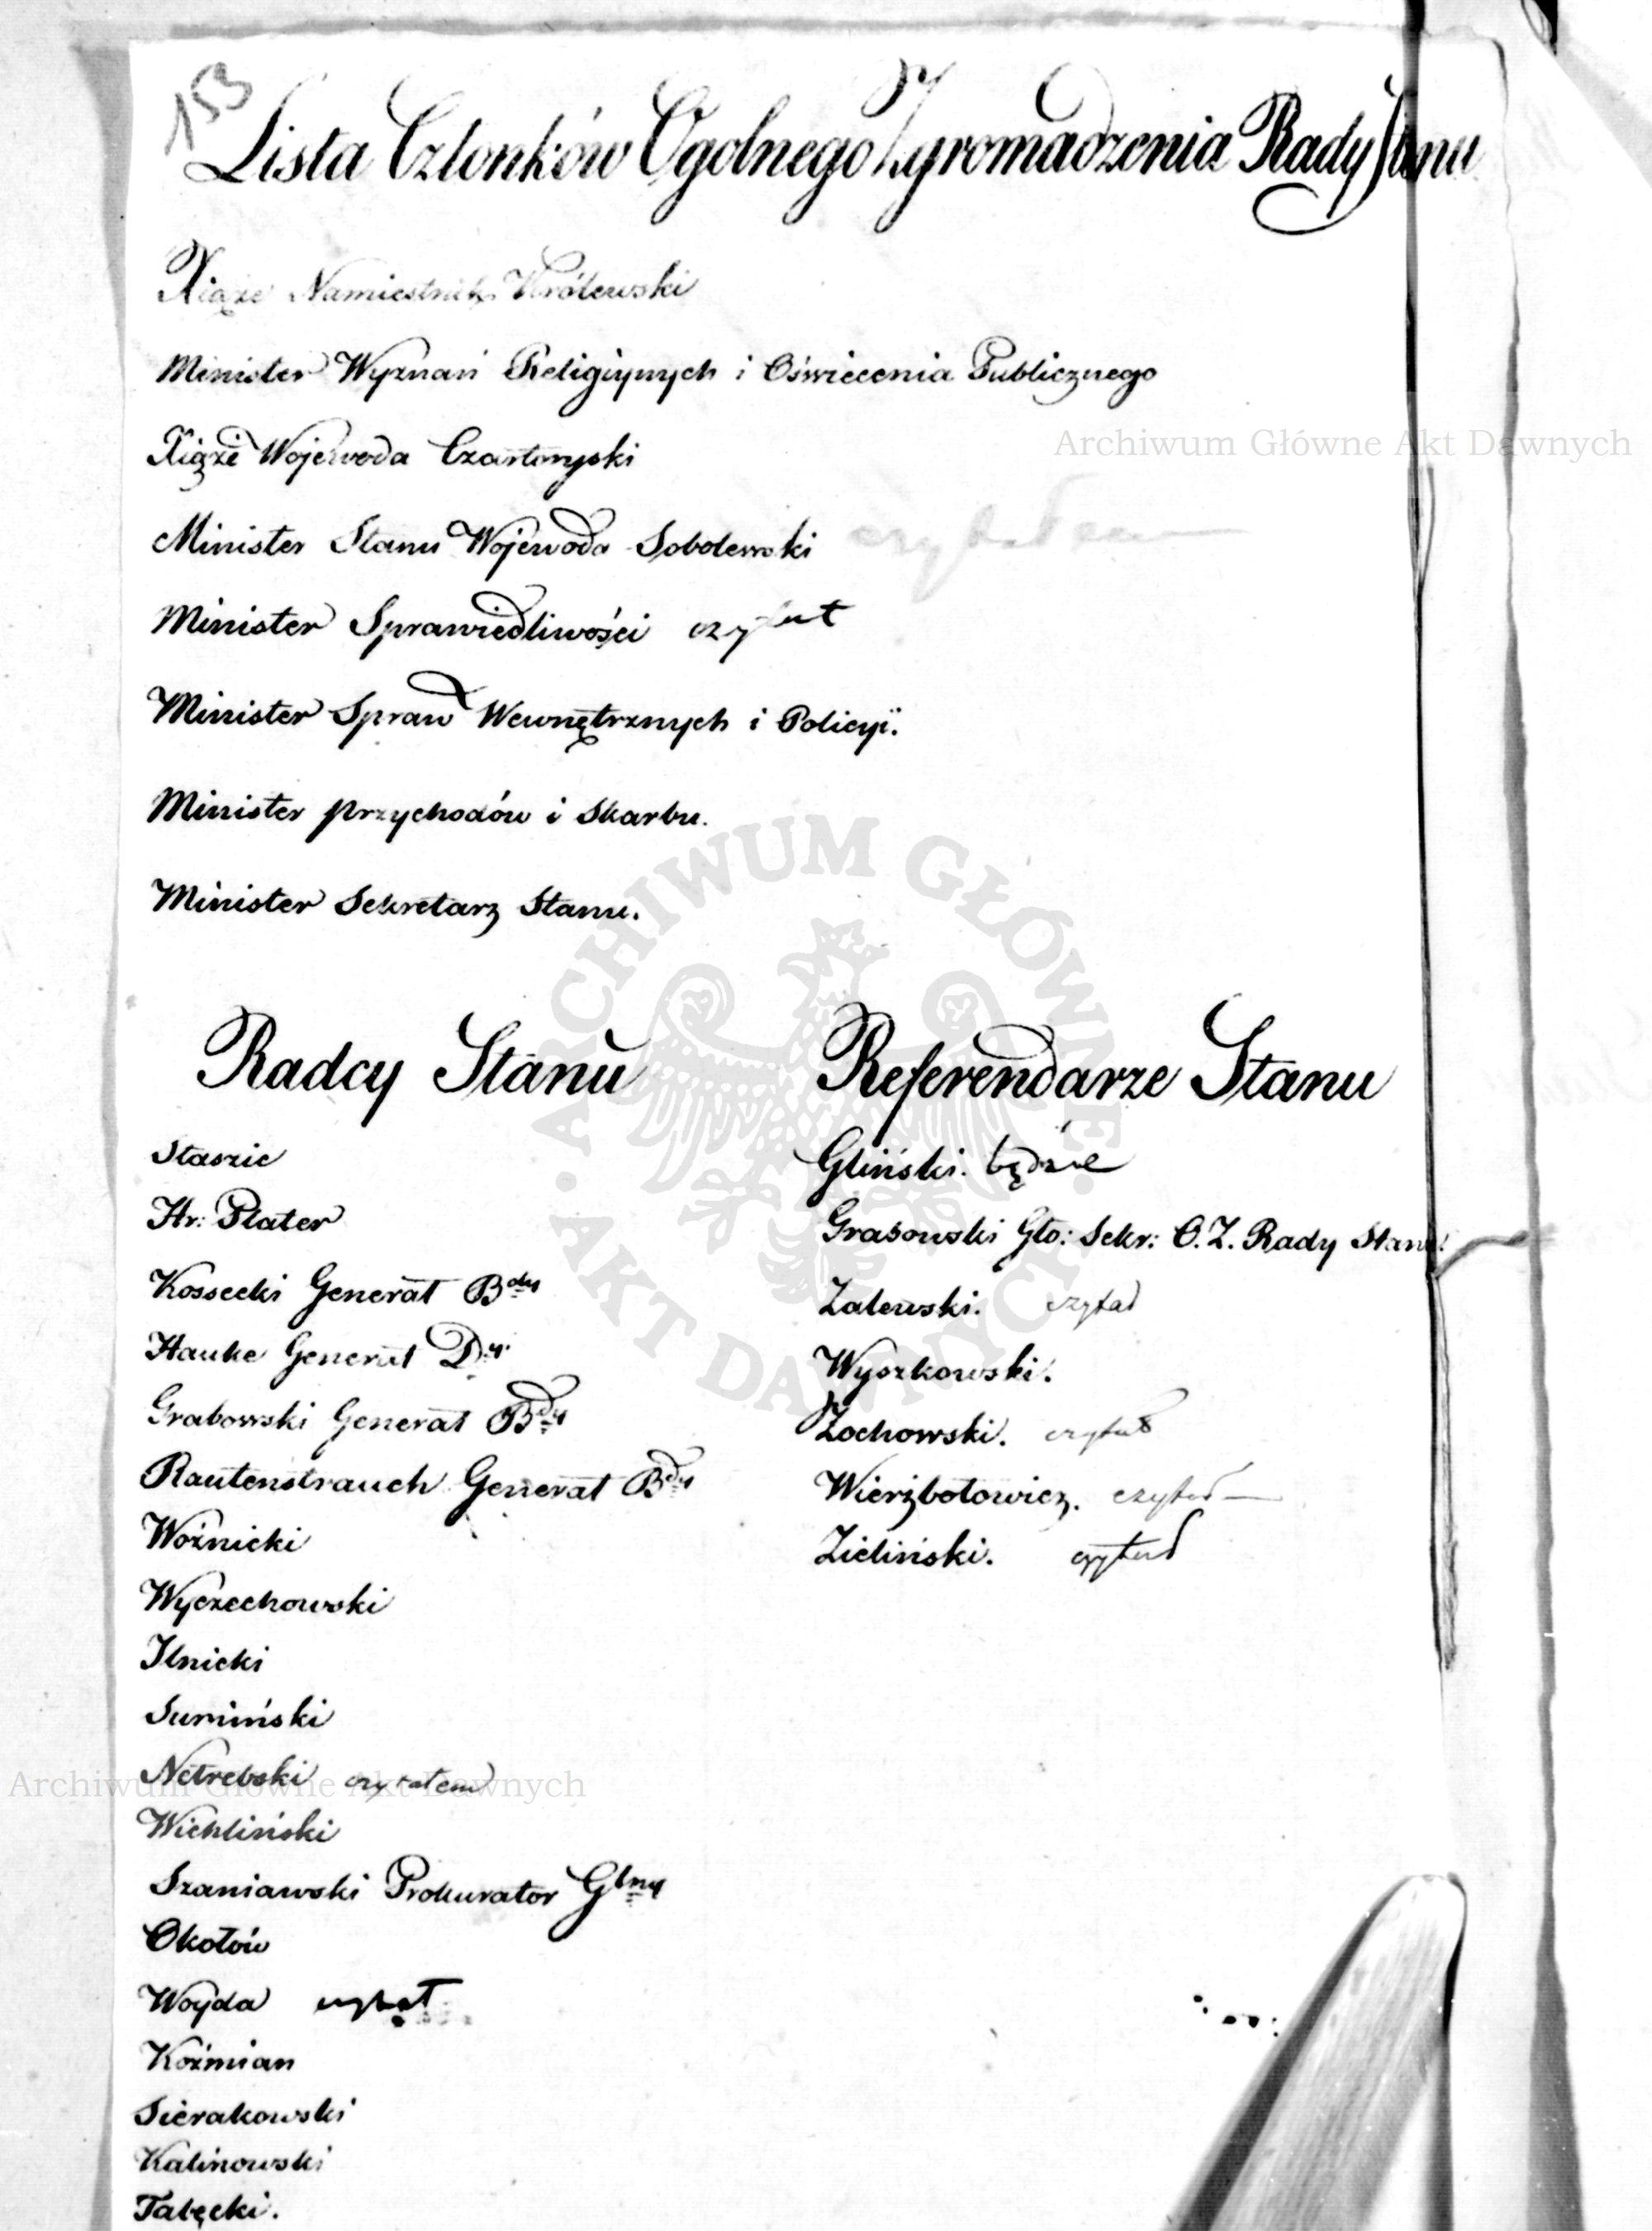 153
Lista Członków Ogolnego Zgromadzenia Rady Stanu
Xiąże Namiestnik Królewski
Minister Wyznań Religiynych i Oświecenia Publicznego
Xiąże Wojewoda Czartoryski
Archiwum Główne Akt Dawnych
Minister Stanu Wojewoda Sobolewski czytałem
Minister Sprawiedliwości czytał
Minister Spraw Wewnętrznych i Policyi.
Minister przychodów i Skarbu.
Minister Sekretarz Stanu.
ARCHIWUM GŁÓWNE AKT DAWNYCH
Radcy Stanu
Staszic
Hr: Plater
Kossecki Generał Bdy
Hauke Generał Dyi
Grabowski Generał Bdy
Rautenstrauch Generał Bdy
Woźnicki
Wyczechowski
Ilnicki
Sumiński
Netrebski czytałem
Archiwum Główne Akt Dawnych
Wichliński
Szaniawski Prokurator Glny
Okołów
Woyda czytał
Koźmian
Sierakowski
Kalinowski
Tabęcki.
Referendarze Stanu
Gliński. będzie
Grabowski Gło: Sekr: O. Z. Rady Stanu.
Zalewski. czytał
Wyszkowski.
Żochowski. czytał
Wierzbołowicz. czytał
Zieliński. czytał